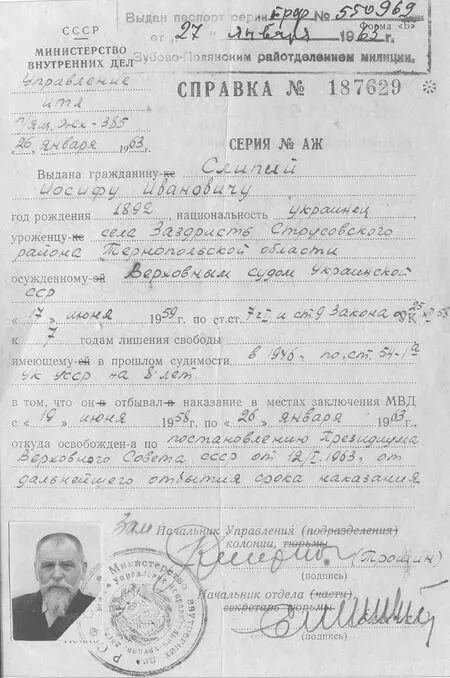 Выдан паспорт серии № 550969
СССР
Форма «Б»
МИНИСТЕРСТВО
ВНУТРЕННИХ ДЕЛ
от „27 января 1963 г.
Зубово-Полянским райотделением милиции.
Управление
итл
п/ящ. ЖХ-385
«26 января 1963 г.
СПРАВКА № 187629 *
СЕРИЯ № АЖ
Выдана гражданину-ке Слипый
Иосифу Ивановичу
год рождения 1892, национальность украинец
уроженцу-ке села Заздристь Струсовского
района Тернопольской области
осужденному-ой Верховным судом Украинской
сср
«17» июня 1959 г. по ст.ст. 7 ч I и ст 9 Закона УК 25 XII 58
к 7 годам лишения свободы
имеющему-ей в прошлом судимости в 1946 - по ст. 54-1а
УК УССР на 8 лет
в том, что он-а отбывал-а наказание в местах заключения МВД
с «19» июня 1958 г. по «26» января 1963 г.
откуда освобожден-а по постановлению Президиума
Верховного Совета ссср от 12/I. 1963, от
дальнейшего отбытия срока наказания
Зам Начальник Управления (подразделения)
колонии, тюрьмы
(Трошин)
(подпись)
Министерство внутренних дел Р С
Начальник отдела (части),
секретарь тюрьмы
(подпись)